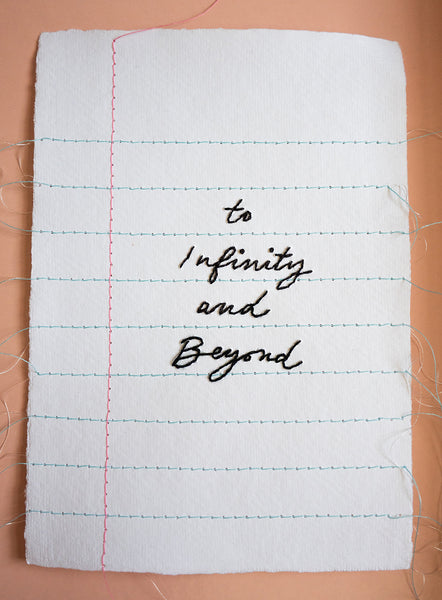 to
Infinity
and
Beyond